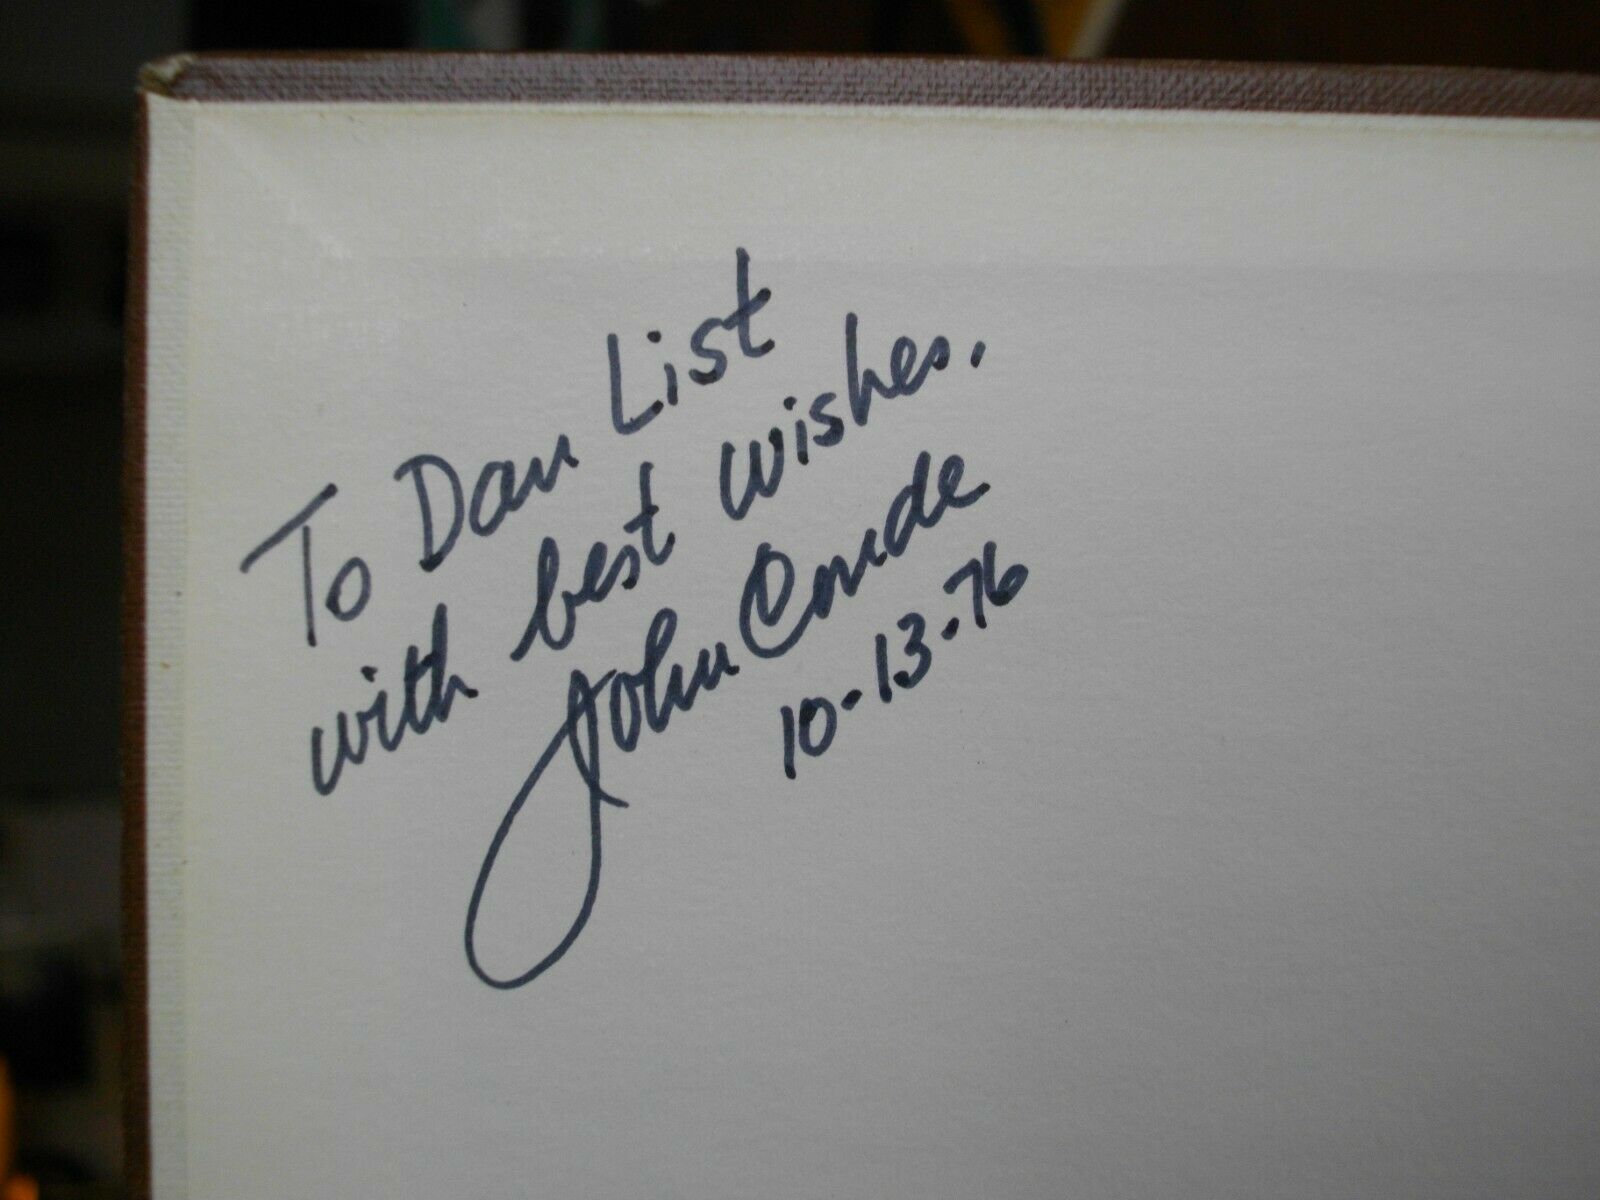 To Dan List
with best wishes.
John Conde
10-13-76